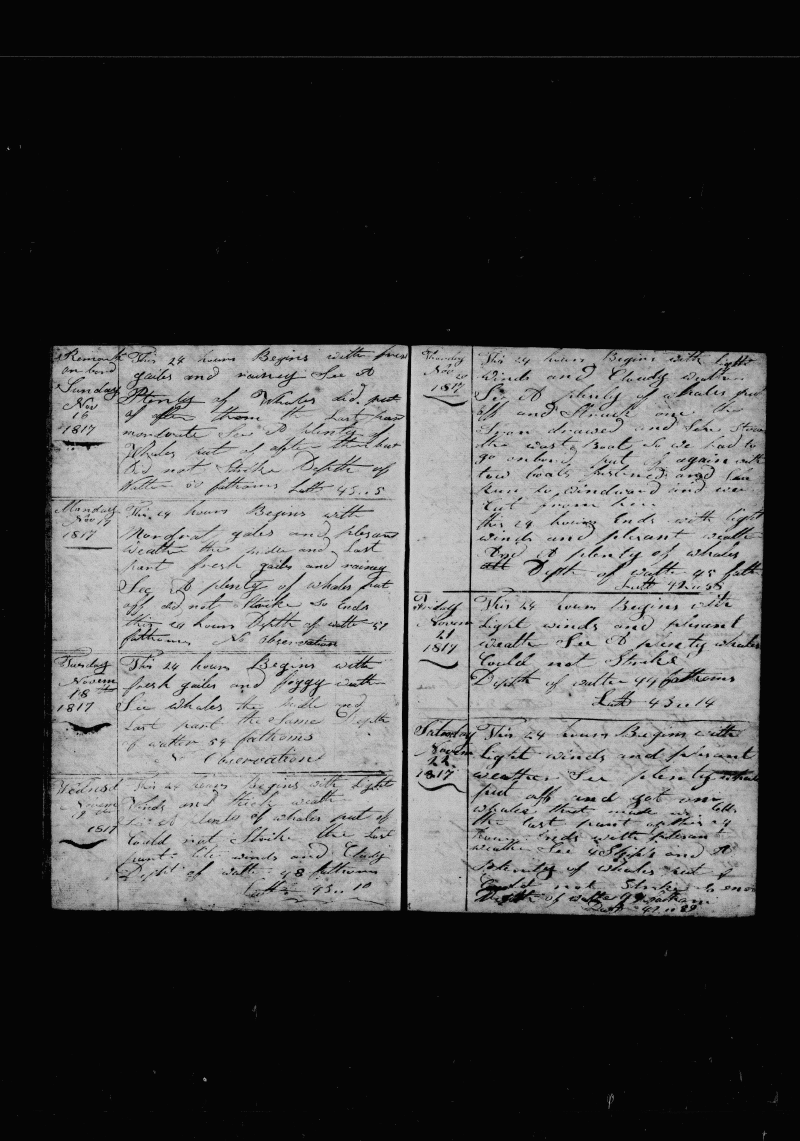 Remark
on bord
Sunday
Nov
16
1817
This 24 hours Begins with fres
gailes and rainey See A
Plenty of Whales did put
of after them the Last part
mordorate See A plenty of
Whales put of after them but
did not Strike Depth of
Watter 50 fathoms Latt 43..5
Monday
Nov 17
1817
This 24 hours Begins with
Mordorat gales and plesant
weath the midle and Last
part fresh gailes and rainey
See A plenty of whales put
off did not Strike So Ends
this 24 hours Depth of watter 51
fathoms No observation
Tuesday
Novem
18
1817
This 24 hours Begins with
fresh gailes and foggy weath
See whales the midle and
Last part the Same Depth
of watter 54 fathoms
No Observation
Wednesd
Novem
19
1817
This 24 hours begins with Light
Winds and weath
See A plenty of whales put of
Could not Strike the Last
part winds and Cloudy
Depth of watt 48 fathoms
Latt 43..10
Thursday
Nov 20
1817
This 24 hours Begins with light
winds and Cloudy weather
See A plenty of whales put
off and Struck one the
Iron drawed and She Stove
the wast Boat So we had to
go onbord put of again with
tow boats fastened and She
Run to windward and we
Cut from her
this 24 hours Ends with light
winds and plesant weath
And A plenty of whales
Depth of watt 45 fath
Latt 42..58
Friday
Novem
21
1817
This 24 hours Begins with
Light winds and plesant
weath See A plenty whales
Could not Strike
Depth of watter 44 fathoms
Latt 43..14
Saturday
Novem
22
1817
This 24 hours Begins with
Light winds and plesant
weather See plenty whales
put off and got one
whales that made
the Last part of this 24
hours ends with plesant
weath See 4 Ships and A
plenty of whales put of
Could not Strike
Depth of watter fathoms
Latt 42..29